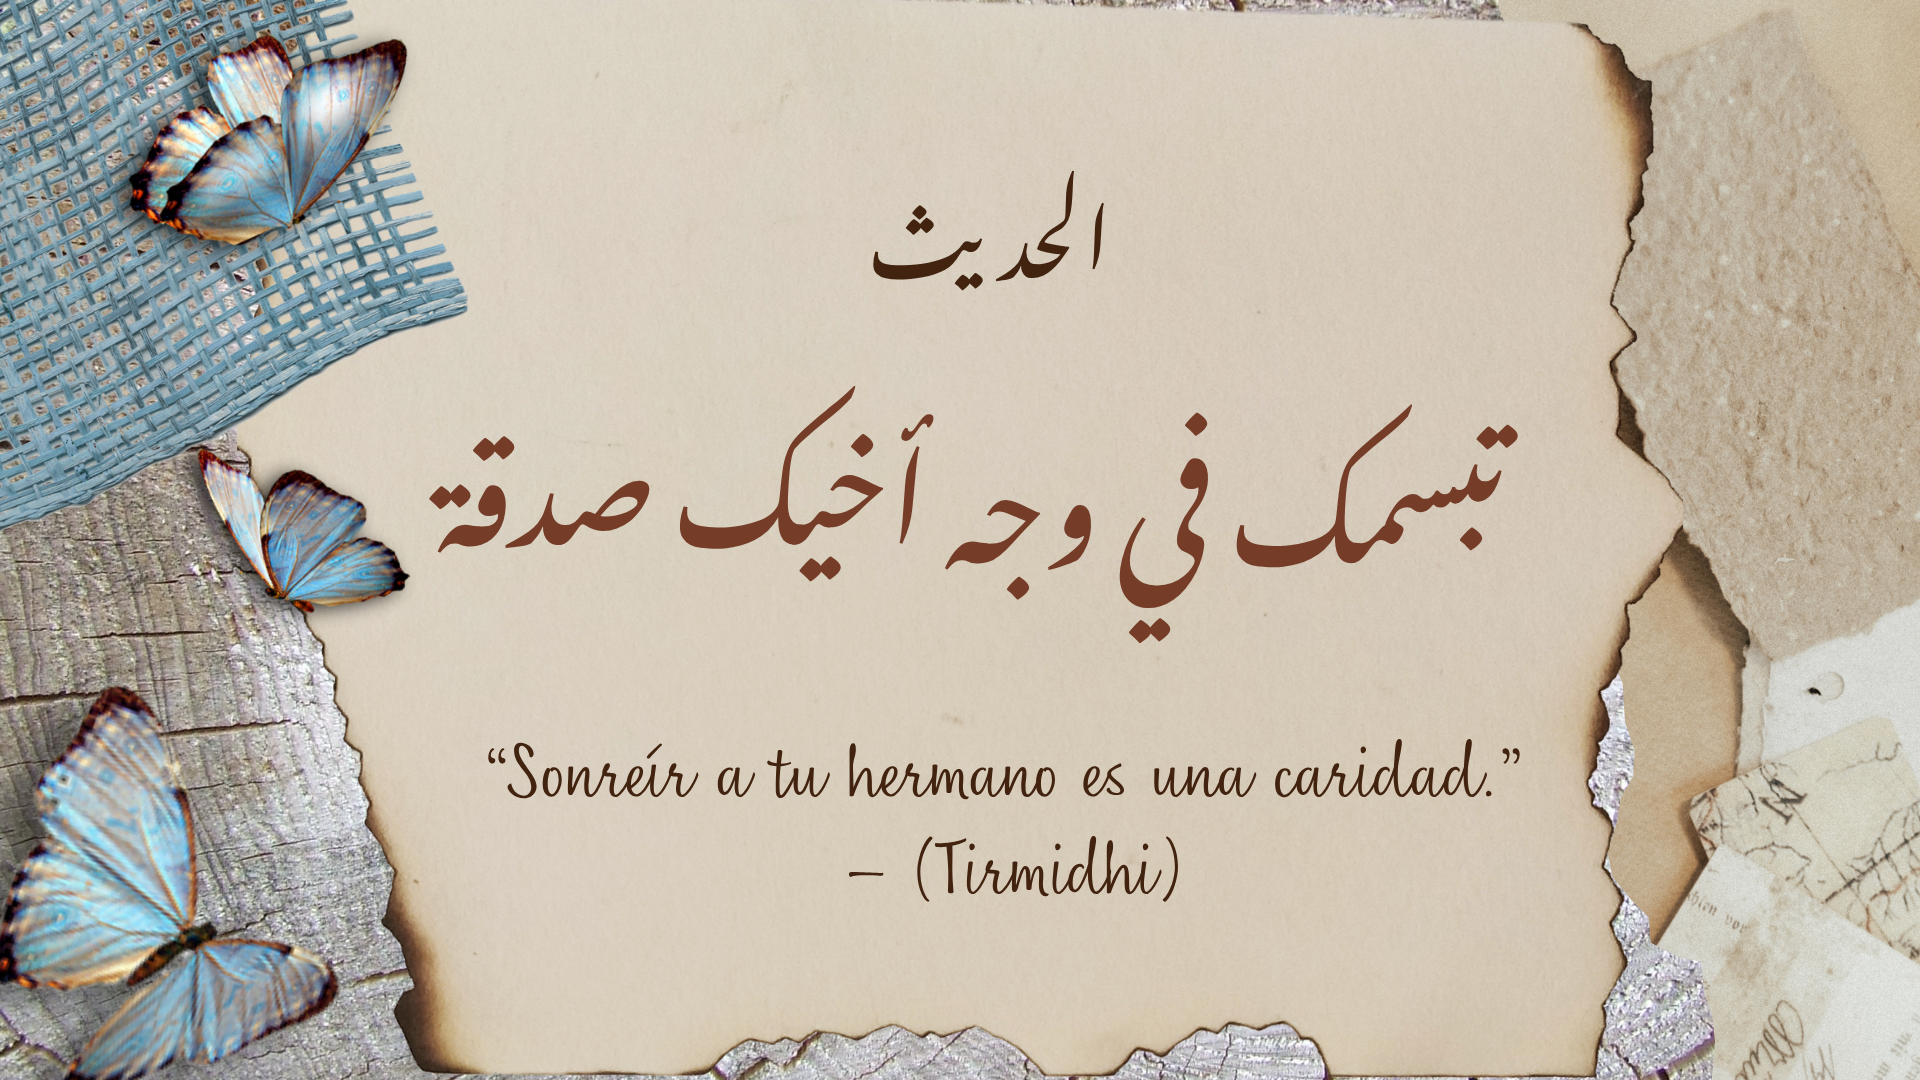 الحديث
تبسمك في وجه أخيك صدقة
“Sonreír a tu hermano es una caridad.”
– (Tirmidhi)